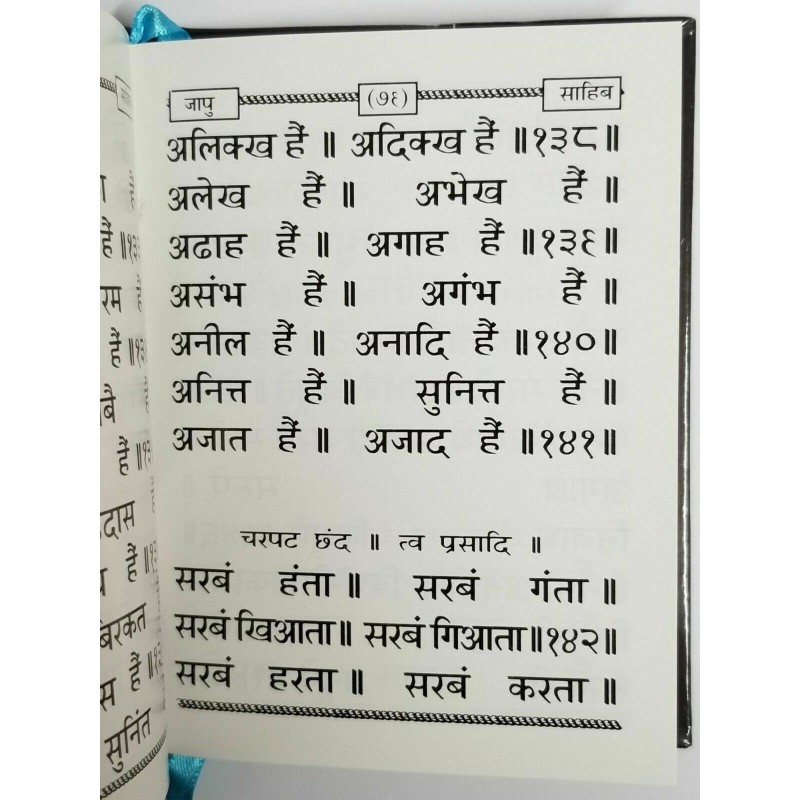 जापु (७६) साहिब
अलिक्ख हैं ॥ अदिक्ख हैं ॥१३८॥
अलेख हैं ॥ अभेख हैं ॥
अढाह हैं ॥ अगाह हैं ॥१३६॥
असंभ हैं ॥ अगंभ हैं ॥
अनील हैं ॥ अनादि हैं ॥१४०॥
अनित्त हैं ॥ सुनित्त हैं ॥
अजात हैं ॥ अजाद हैं ॥१४१॥
चरपट छंद ॥ त्व प्रसादि ॥
सरबं हंता ॥ सरबं गंता ॥
सरबं खिआता॥ सरबं गिआता॥१४२॥
सरबं हरता ॥ सरबं करता ॥
हैं ॥
रम
हैं
बै
हैं
दास
हैं
बिरकत
स हैं
सुनिंत